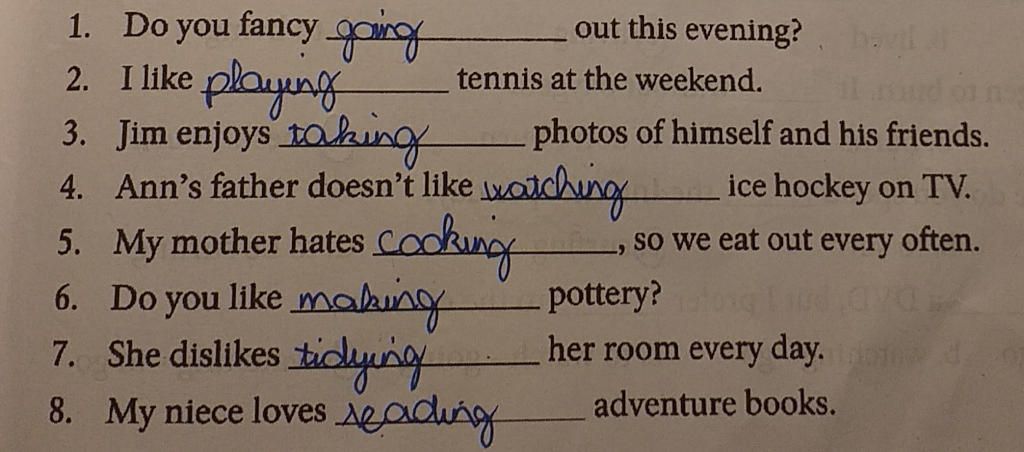 1. Do you fancy going out this evening?
2. I like playing tennis at the weekend.
3. Jim enjoys taking photos of himself and his friends.
4. Ann's father doesn't like watching ice hockey on TV.
5. My mother hates cooking, so we eat out every often.
6. Do you like making pottery?
7. She dislikes tidying her room every day.
8. My niece loves reading adventure books.